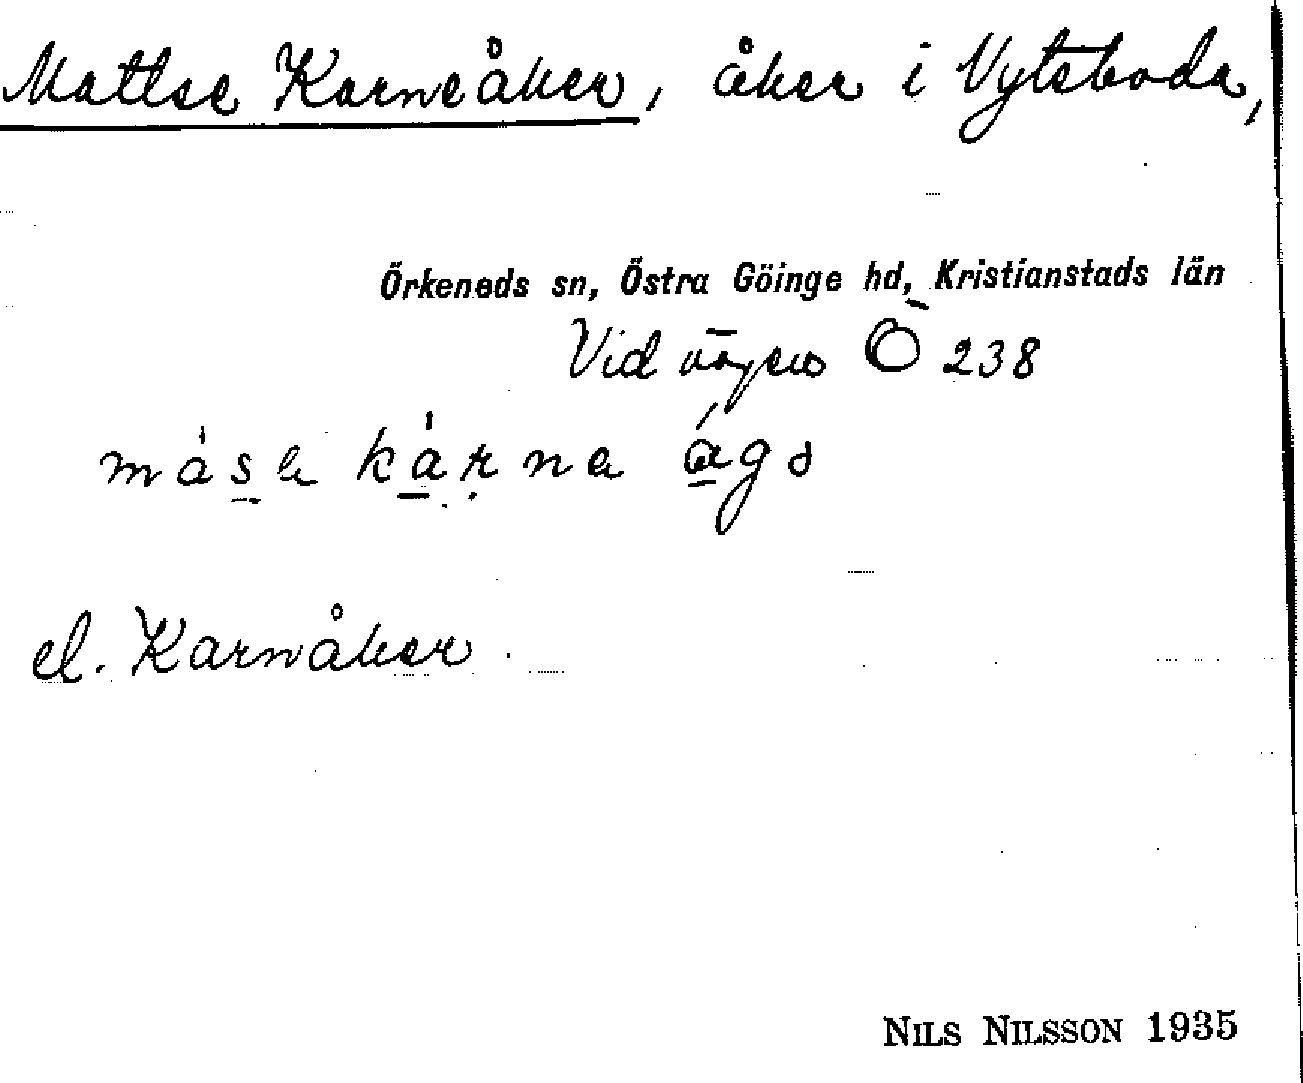 Mattse Karneåker, åker i Vytsboda,
Örkeneds sn, Östra Göinge hd, Kristianstads län
Vid vägen Ö 238
måsa kárna ágs
el. Karnåker.
NILS NILSSON 1935